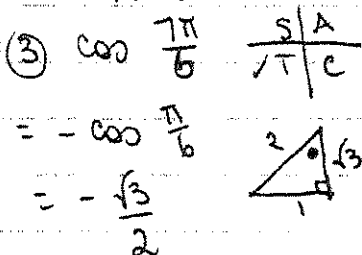 ③ cos 7π/6
S | A
✓T | C
= - cos π/6
= - √3/2
2 √3
1